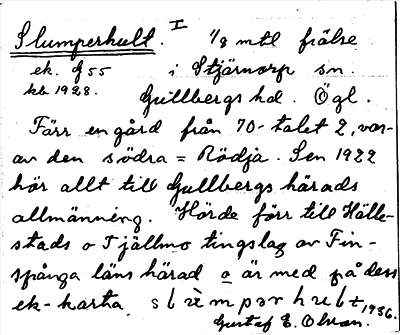 Slumperhult. I 1/8 mtl frälse
ek. f 55 i Stjärnorp sn.
kb 1928. Gullbergs hd. Ögl.
Färr en gård från 70-talet 2, var-
av den södra = Rödja. Sen 1922
hör allt till Gullbergs härads
allmänning. Hörde förr till Hälle-
stads o Tjällmo tingslag av Fin-
spånga läns härad o är med på dess
ek-karta.
1936.
Gustaf E. Olsson.